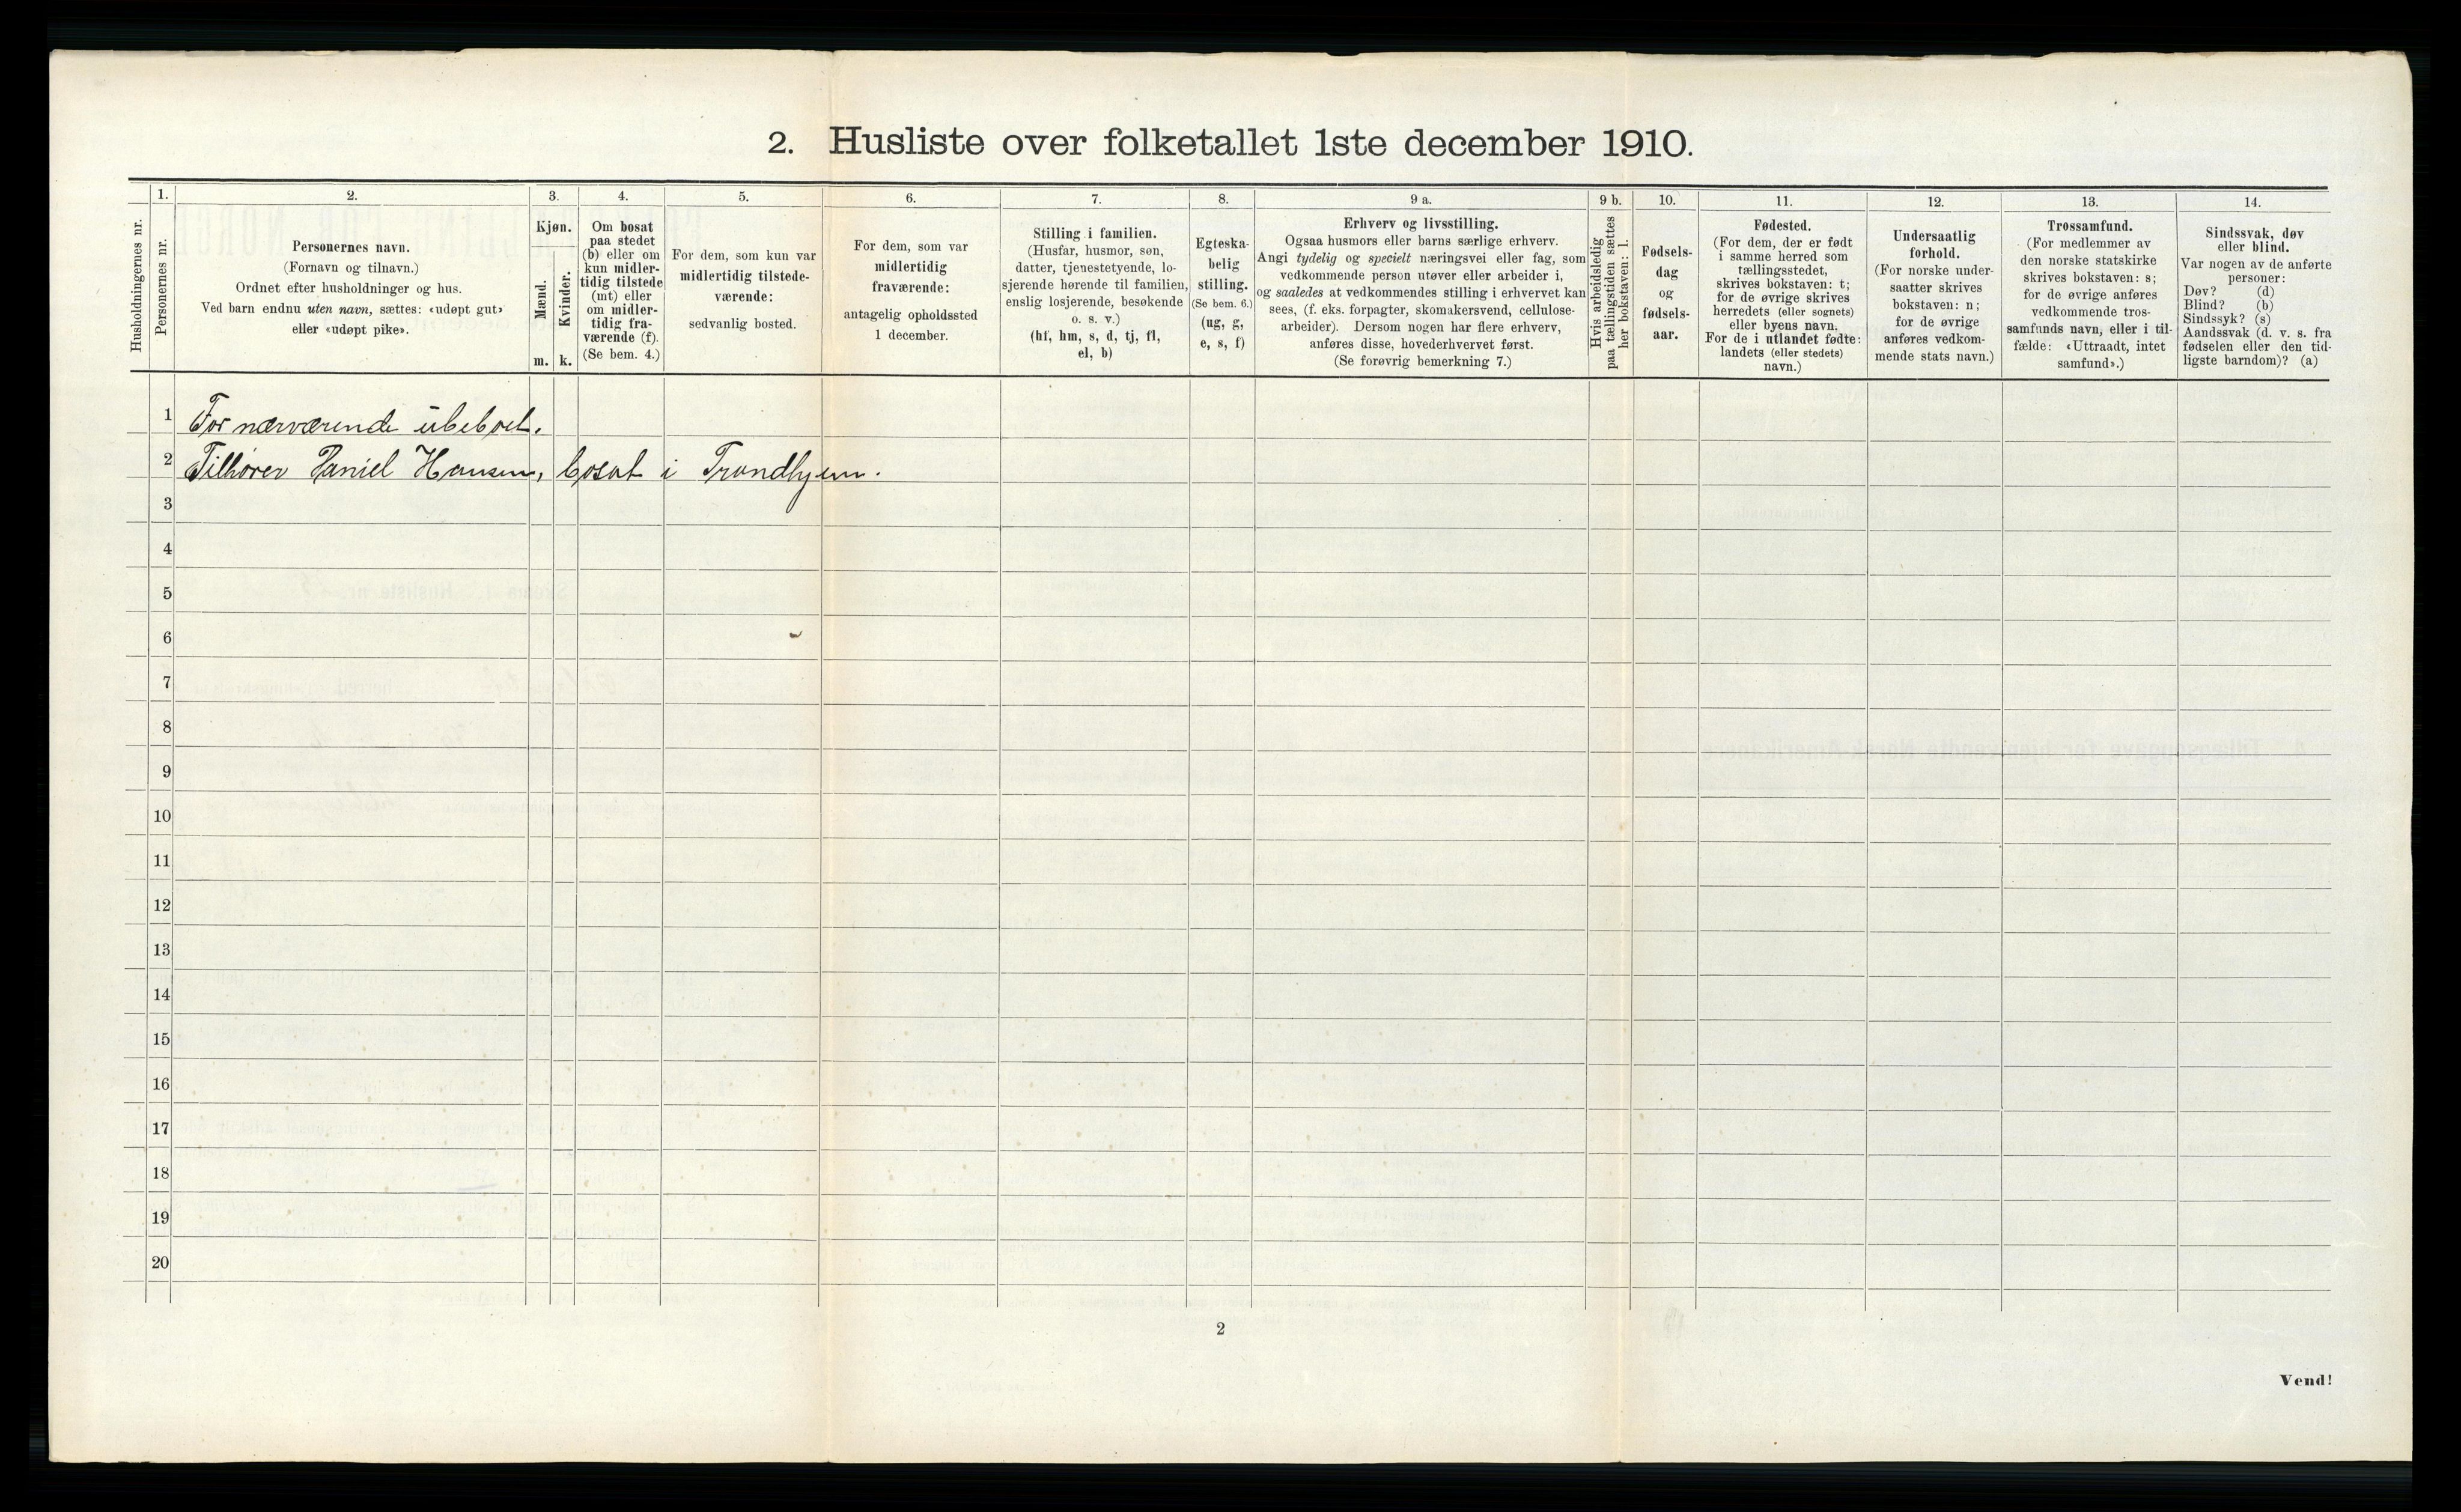 2. Husliste over folketallet 1ste december 1910.
Husholdningernes nr.
1.
Personernes nr.
2.
Personernes navn.
(Fornavn og tilnavn.)
Ordnet efter husholdninger og hus.
Ved barn endnu uten navn, sættes: «udøpt gut»
eller «udøpt pike».
3.
Kjøn.
Mænd.
Kvinder.
m. k.
4.
Om bosat
paa stedet
(b) eller om
kun midler-
tidig tilstede
(mt) eller
om midler-
tidig fra-
værende (f).
(Se bem. 4.)
5.
For dem, som kun var
midlertidig tilstede-
værende:
sedvanlig bosted.
6.
For dem, som var
midlertidig
fraværende:
antagelig opholdssted
1 december.
7.
Stilling i familien.
(Husfar, husmor, søn,
datter, tjenestetyende, lo-
sjerende hørende til familien,
enslig losjerende, besøkende
o. s. v.)
(hf, hm, s, d, tj, fl,
el, b)
8.
Egteska-
belig
stilling.
(Se bem. 6.)
(ug, g,
e, s, f)
9 a.
Erhverv og livsstilling.
Ogsaa husmors eller barns særlige erhverv.
Angi tydelig og specielt næringsvei eller fag, som
vedkommende person utøver eller arbeider i,
og saaledes at vedkommendes stilling i erhvervet kan
sees, (f. eks. forpagter, skomakersvend, cellulose-
arbeider). Dersom nogen har flere erhverv,
anføres disse, hovederhvervet først.
(Se forøvrig bemerkning 7.)
9 b.
Hvis arbeidsledig
paa tællingstiden sættes
her bokstaven: l.
10.
Fødsels-
dag
og
fødsels-
aar.
11.
Fødested.
(For dem, der er født
i samme herred som
tællingsstedet,
skrives bokstaven: t;
for de øvrige skrives
herredets (eller sognets)
eller byens navn.
For de i utlandet fødte:
landets (eller stedets)
navn.)
12.
Undersaatlig
forhold.
(For norske under-
saatter skrives
bokstaven: n;
for de øvrige
anføres vedkom-
mende stats navn.)
13.
Trossamfund.
(For medlemmer av
den norske statskirke
skrives bokstaven: s;
for de øvrige anføres
vedkommende tros-
samfunds navn, eller i til-
fælde: «Uttraadt, intet
samfund».)
14.
Sindssvak, døv
eller blind.
Var nogen av de anførte
personer:
Døv? (d)
Blind? (b)
Sindssyk? (s)
Aandssvak (d. v. s. fra
fødselen eller den tid-
ligste barndom)? (a)
1 For nærværende ubeboet.
2 Tilhører Daniel Hansen, bosat i Trondhjem.
3
4
5
6
7
8
9
10
11
12
13
14
15
16
17
18
19
20
2
Vend!